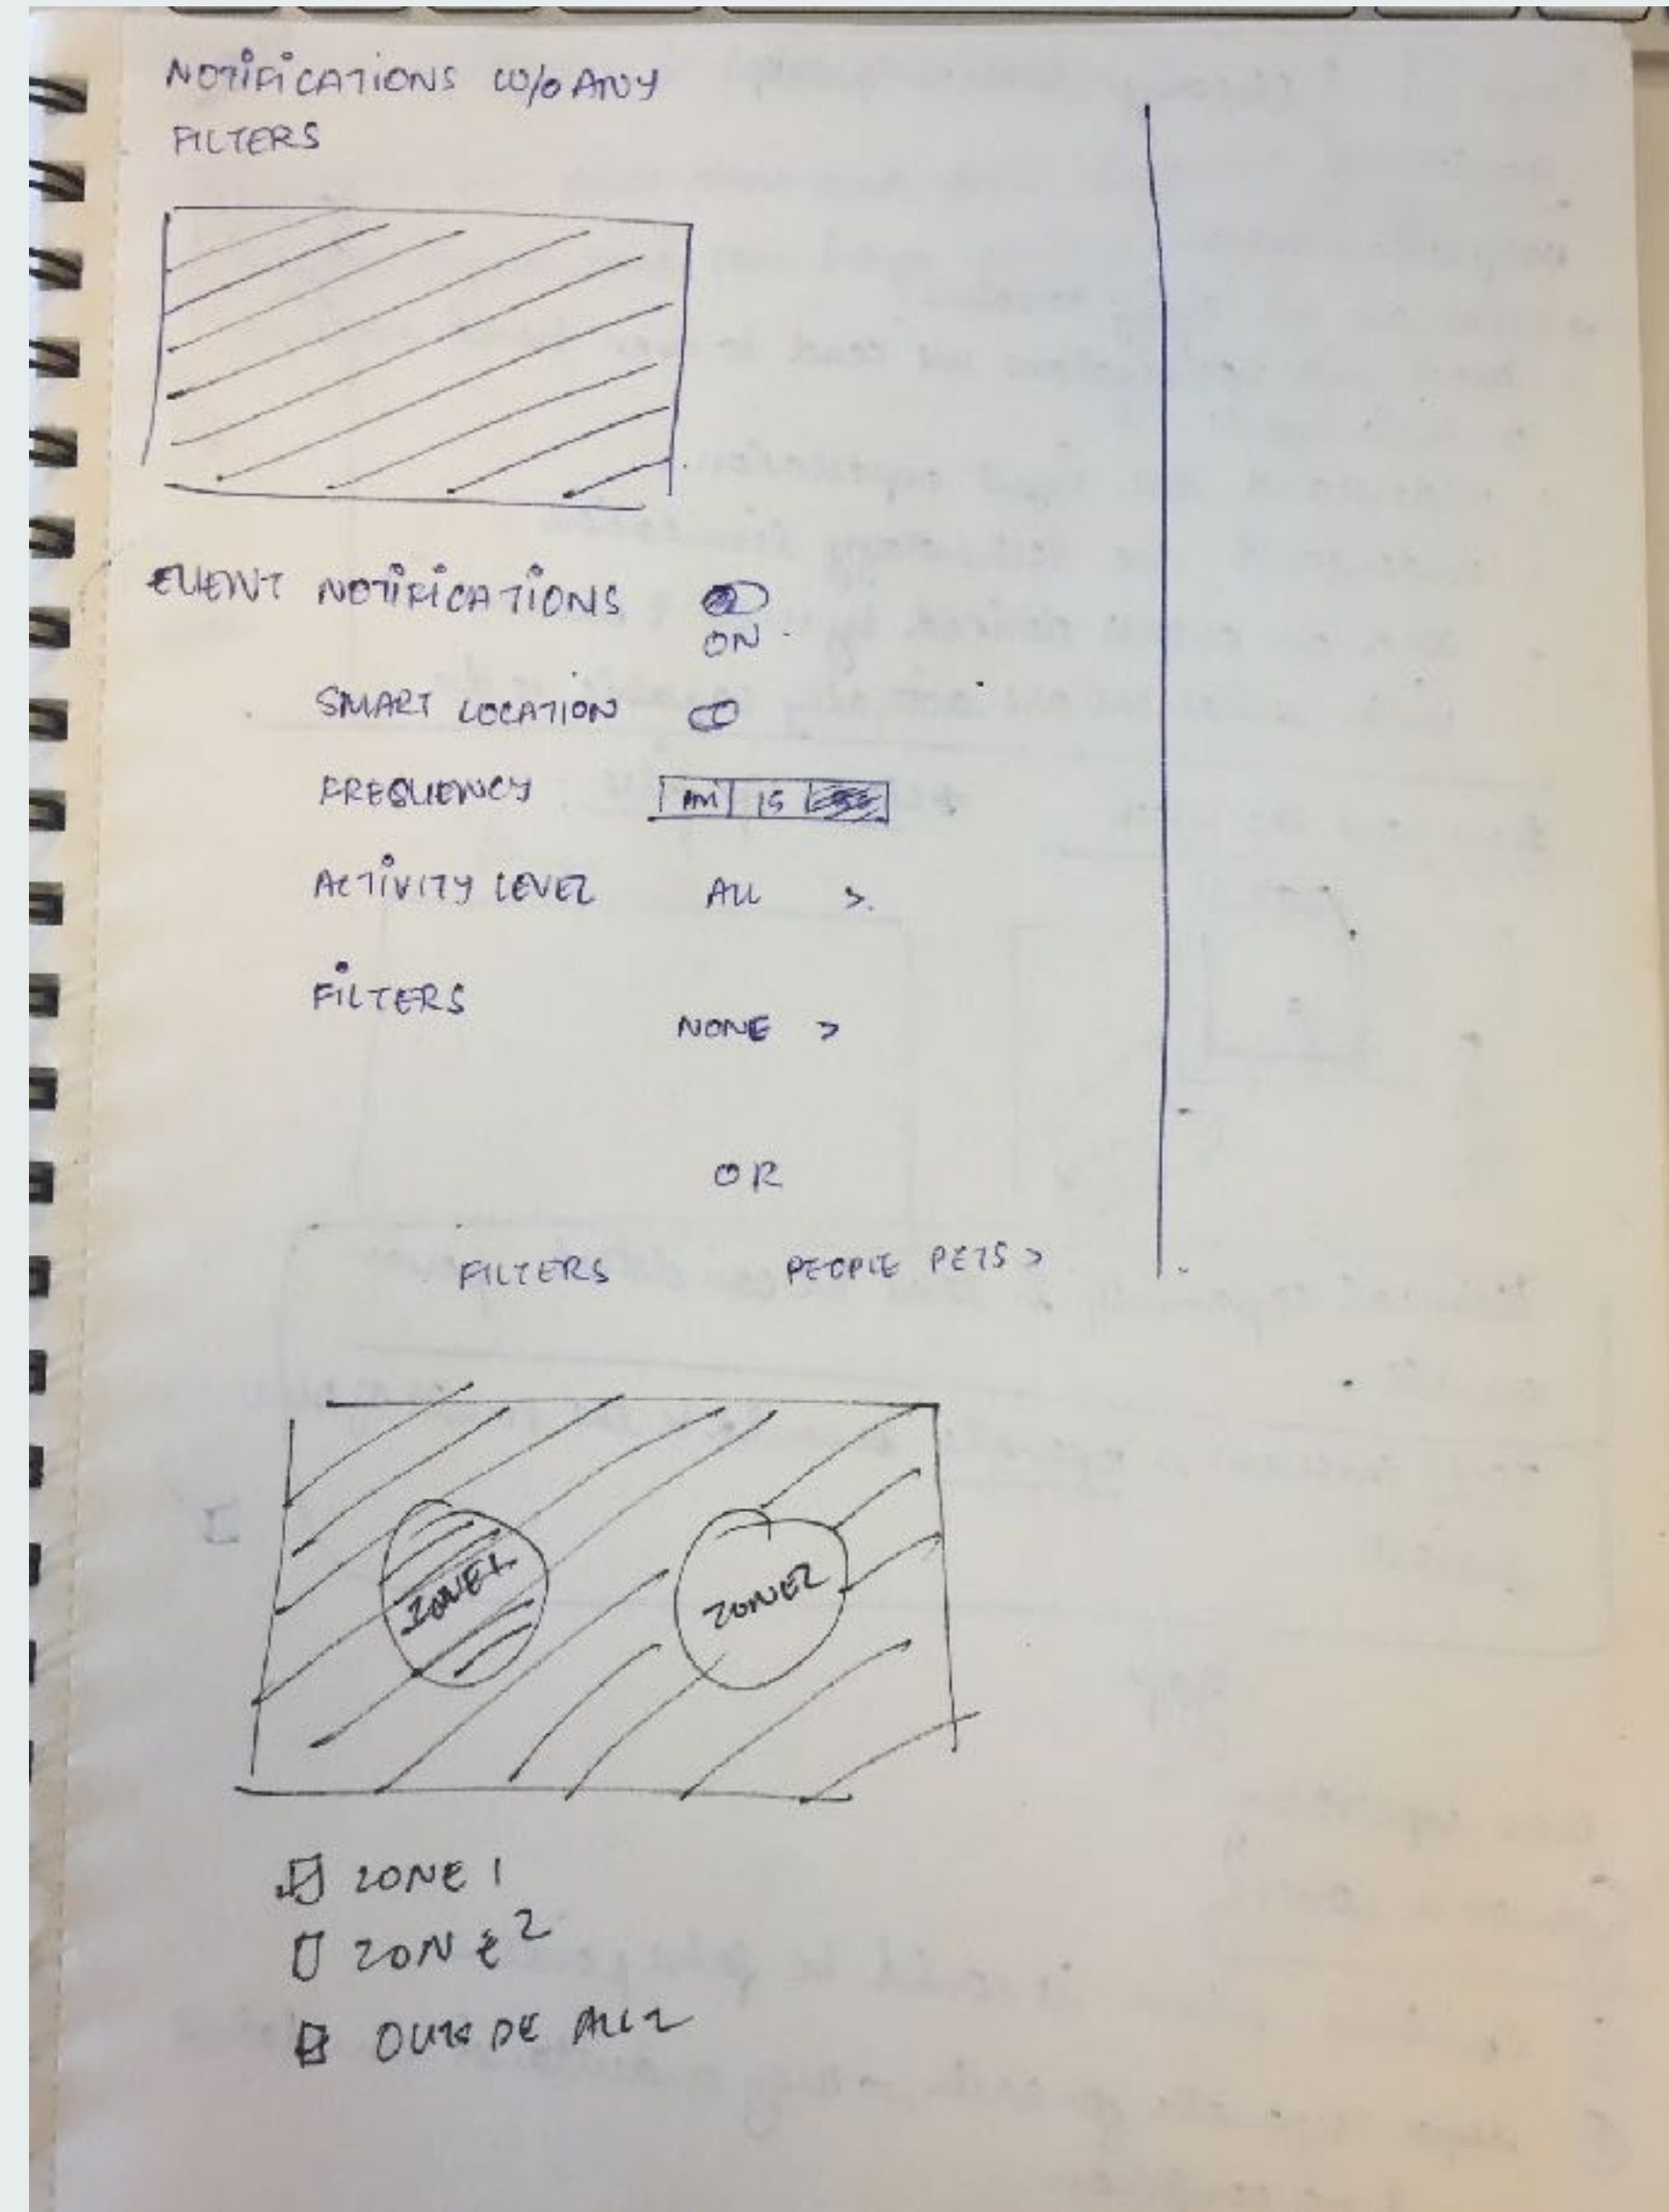 NOTIFICATIONS W/O ANY
FILTERS
EVENT NOTIFICATIONS
ON
SMART LOCATION
FREQUENCY 15
ACTIVITY LEVEL ALL >
FILTERS
NONE >
OR
FILTERS PEOPLE PETS >
ZONE 1
ZONE 2
ZONE 1
ZONE 2
OUTSIDE ALL